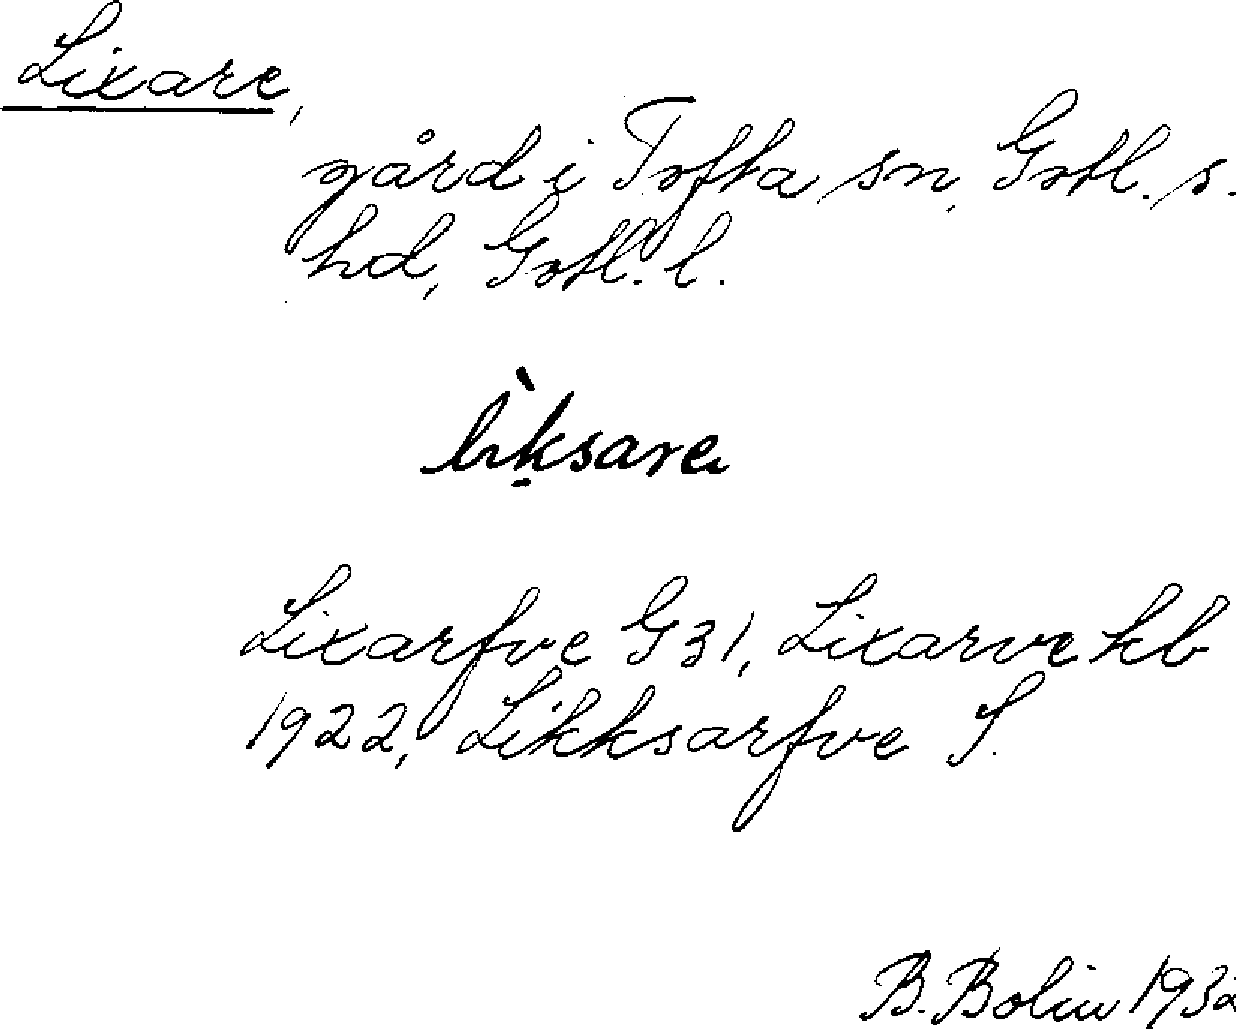 Lixare,
gård i Tofta sn, Gotl. s.
hd, Gotl. l.
lìksare
Lixarfve G31, Lixarve kb
1922, Likksarfve S.
B. Bolin 1932